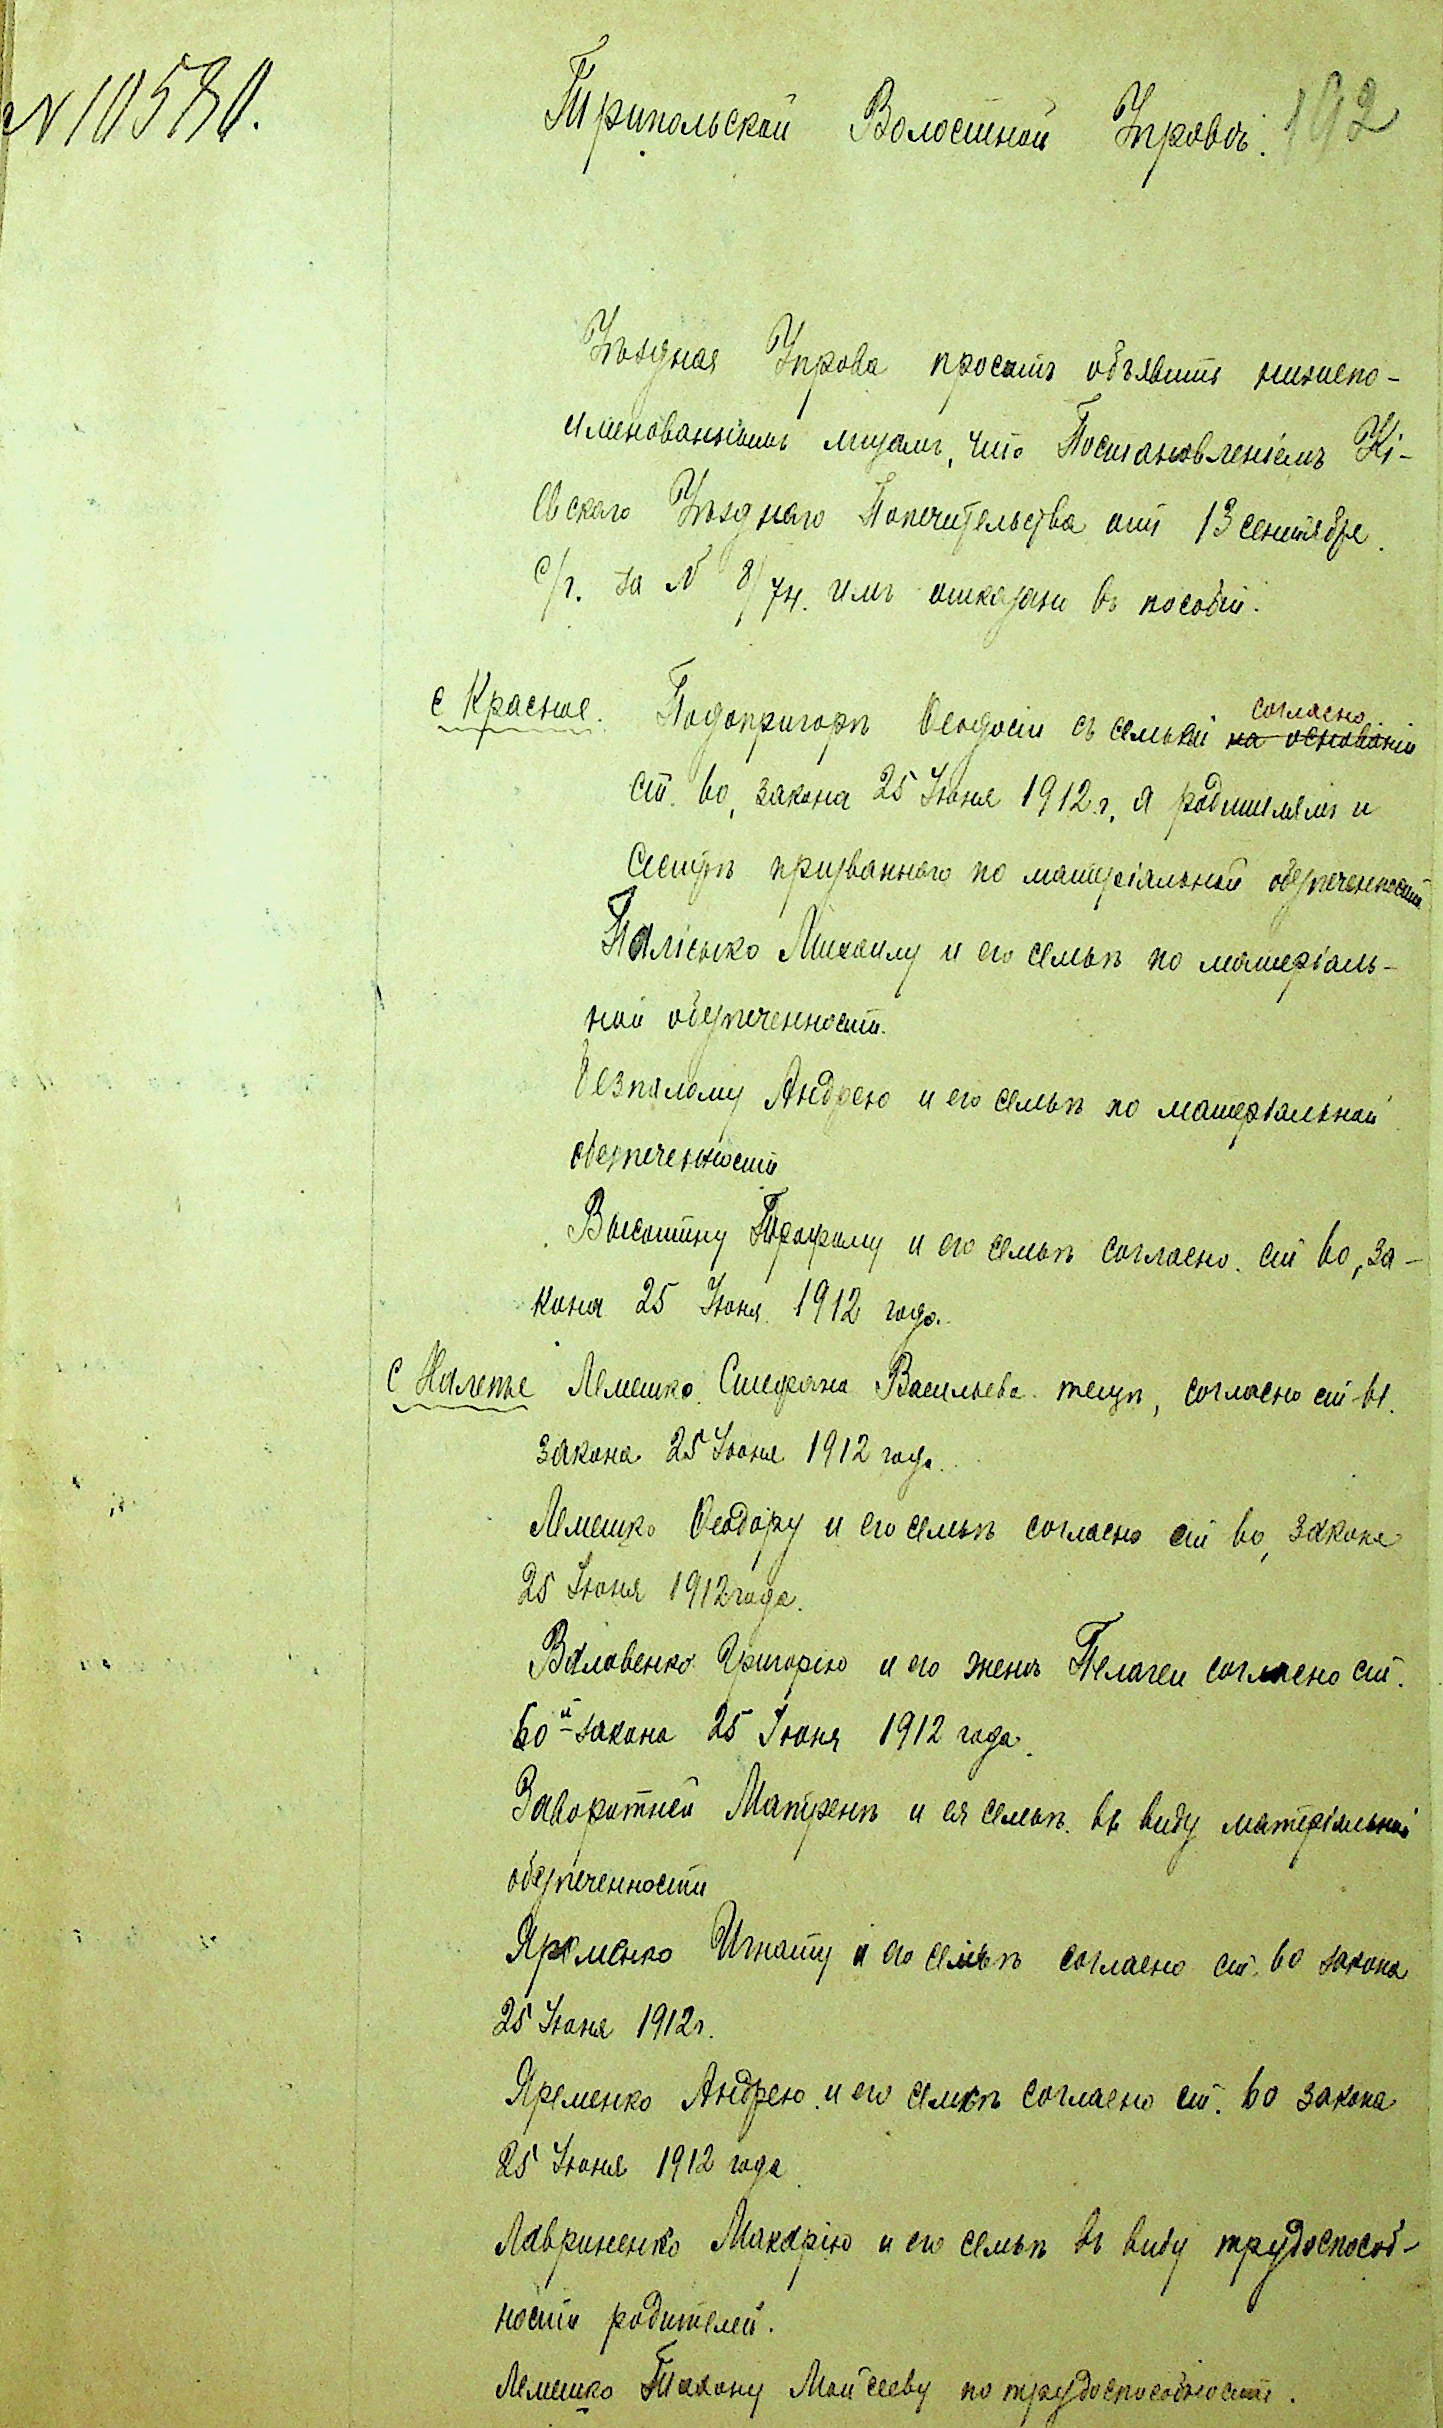 N 10580.
Трипольской Волостной Управѣ. 192
Уѣздная Управа проситъ объявить нижепо-
именованнымъ лицамъ, что Постановленіемъ Кі-
евскаго Уѣзднаго Попечительства отъ 13 сентября
с/г. за N 8/74. имъ отказано въ пособіи.
с Красное. Подопригорѣ Феодосіи съ семьей согласно на основаніи
ст. 60, закона 25 Июня 1912 г, а родителямъ и
сестрѣ призваннаго по матеріальной обезпеченности
Палісько Михаилу и его семьѣ по матеріаль-
ной обезпеченности.
Безпалому Андрею и его семьѣ по матеріальной
обезпеченности
Высотину Трофиму и его семьѣ согласно. ст 60, за-
кона 25 Июня 1912 года.
с Халепье Лемешко Стефана Васильева тещѣ, согласно ст 61.
закона 25 Июня 1912 года.
Лемешко Феодору и его семьѣ согласно ст 60, закона
25 Июня 1912 года.
Валовенко Григорію и его женѣ Пелагеи согласно ст.
60й закона 25 Июня 1912 года.
Заворотней Матренѣ и ея семьѣ въ виду матеріальной
обезпеченности
Яременко Игнату и его семьѣ согласно ст. 60 закона
25 Июня 1912 г.
Яременко Андрею и его семьѣ согласно ст. 60 закона
25 Июня 1912 года
Лавриненко Макарію и его семьѣ въ виду трудоспособ-
ности родителей.
Лемешко Тихону Моисееву по трудоспособности.